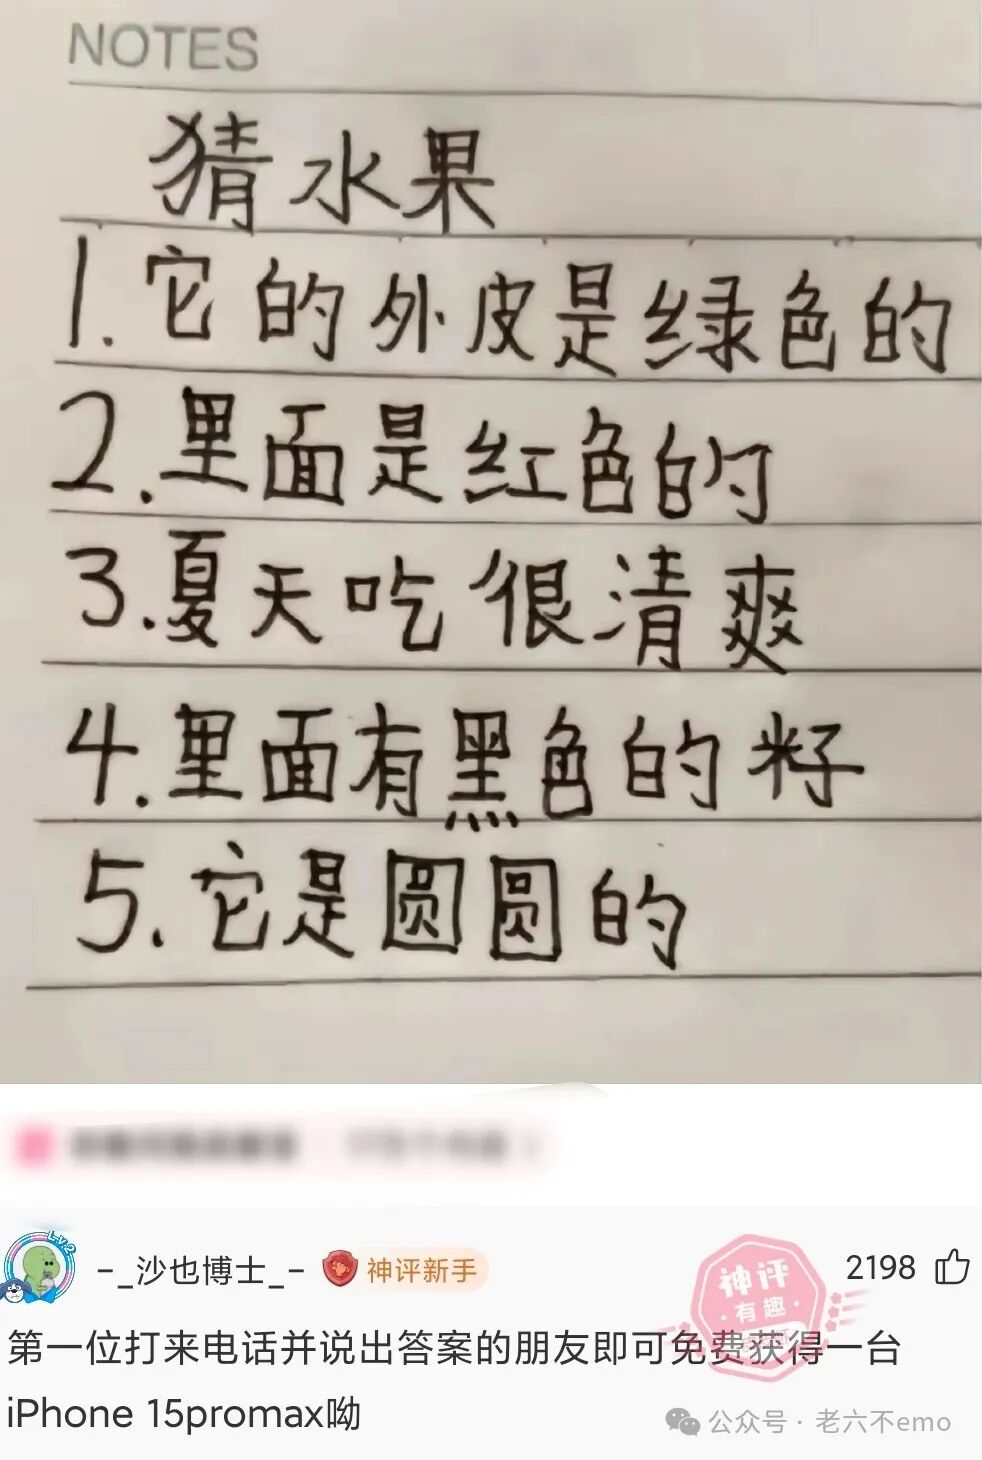 NOTES
猜水果
1.它的外皮是绿色的
2.里面是红色的
3.夏天吃很清爽
4.里面有黑色的籽
5.它是圆圆的
Lv.2
-_沙也博士_-
神评新手
神评
有趣
2198
第一位打来电话并说出答案的朋友即可免费获得一台
iPhone 15promax呦
公众号·老六不emo